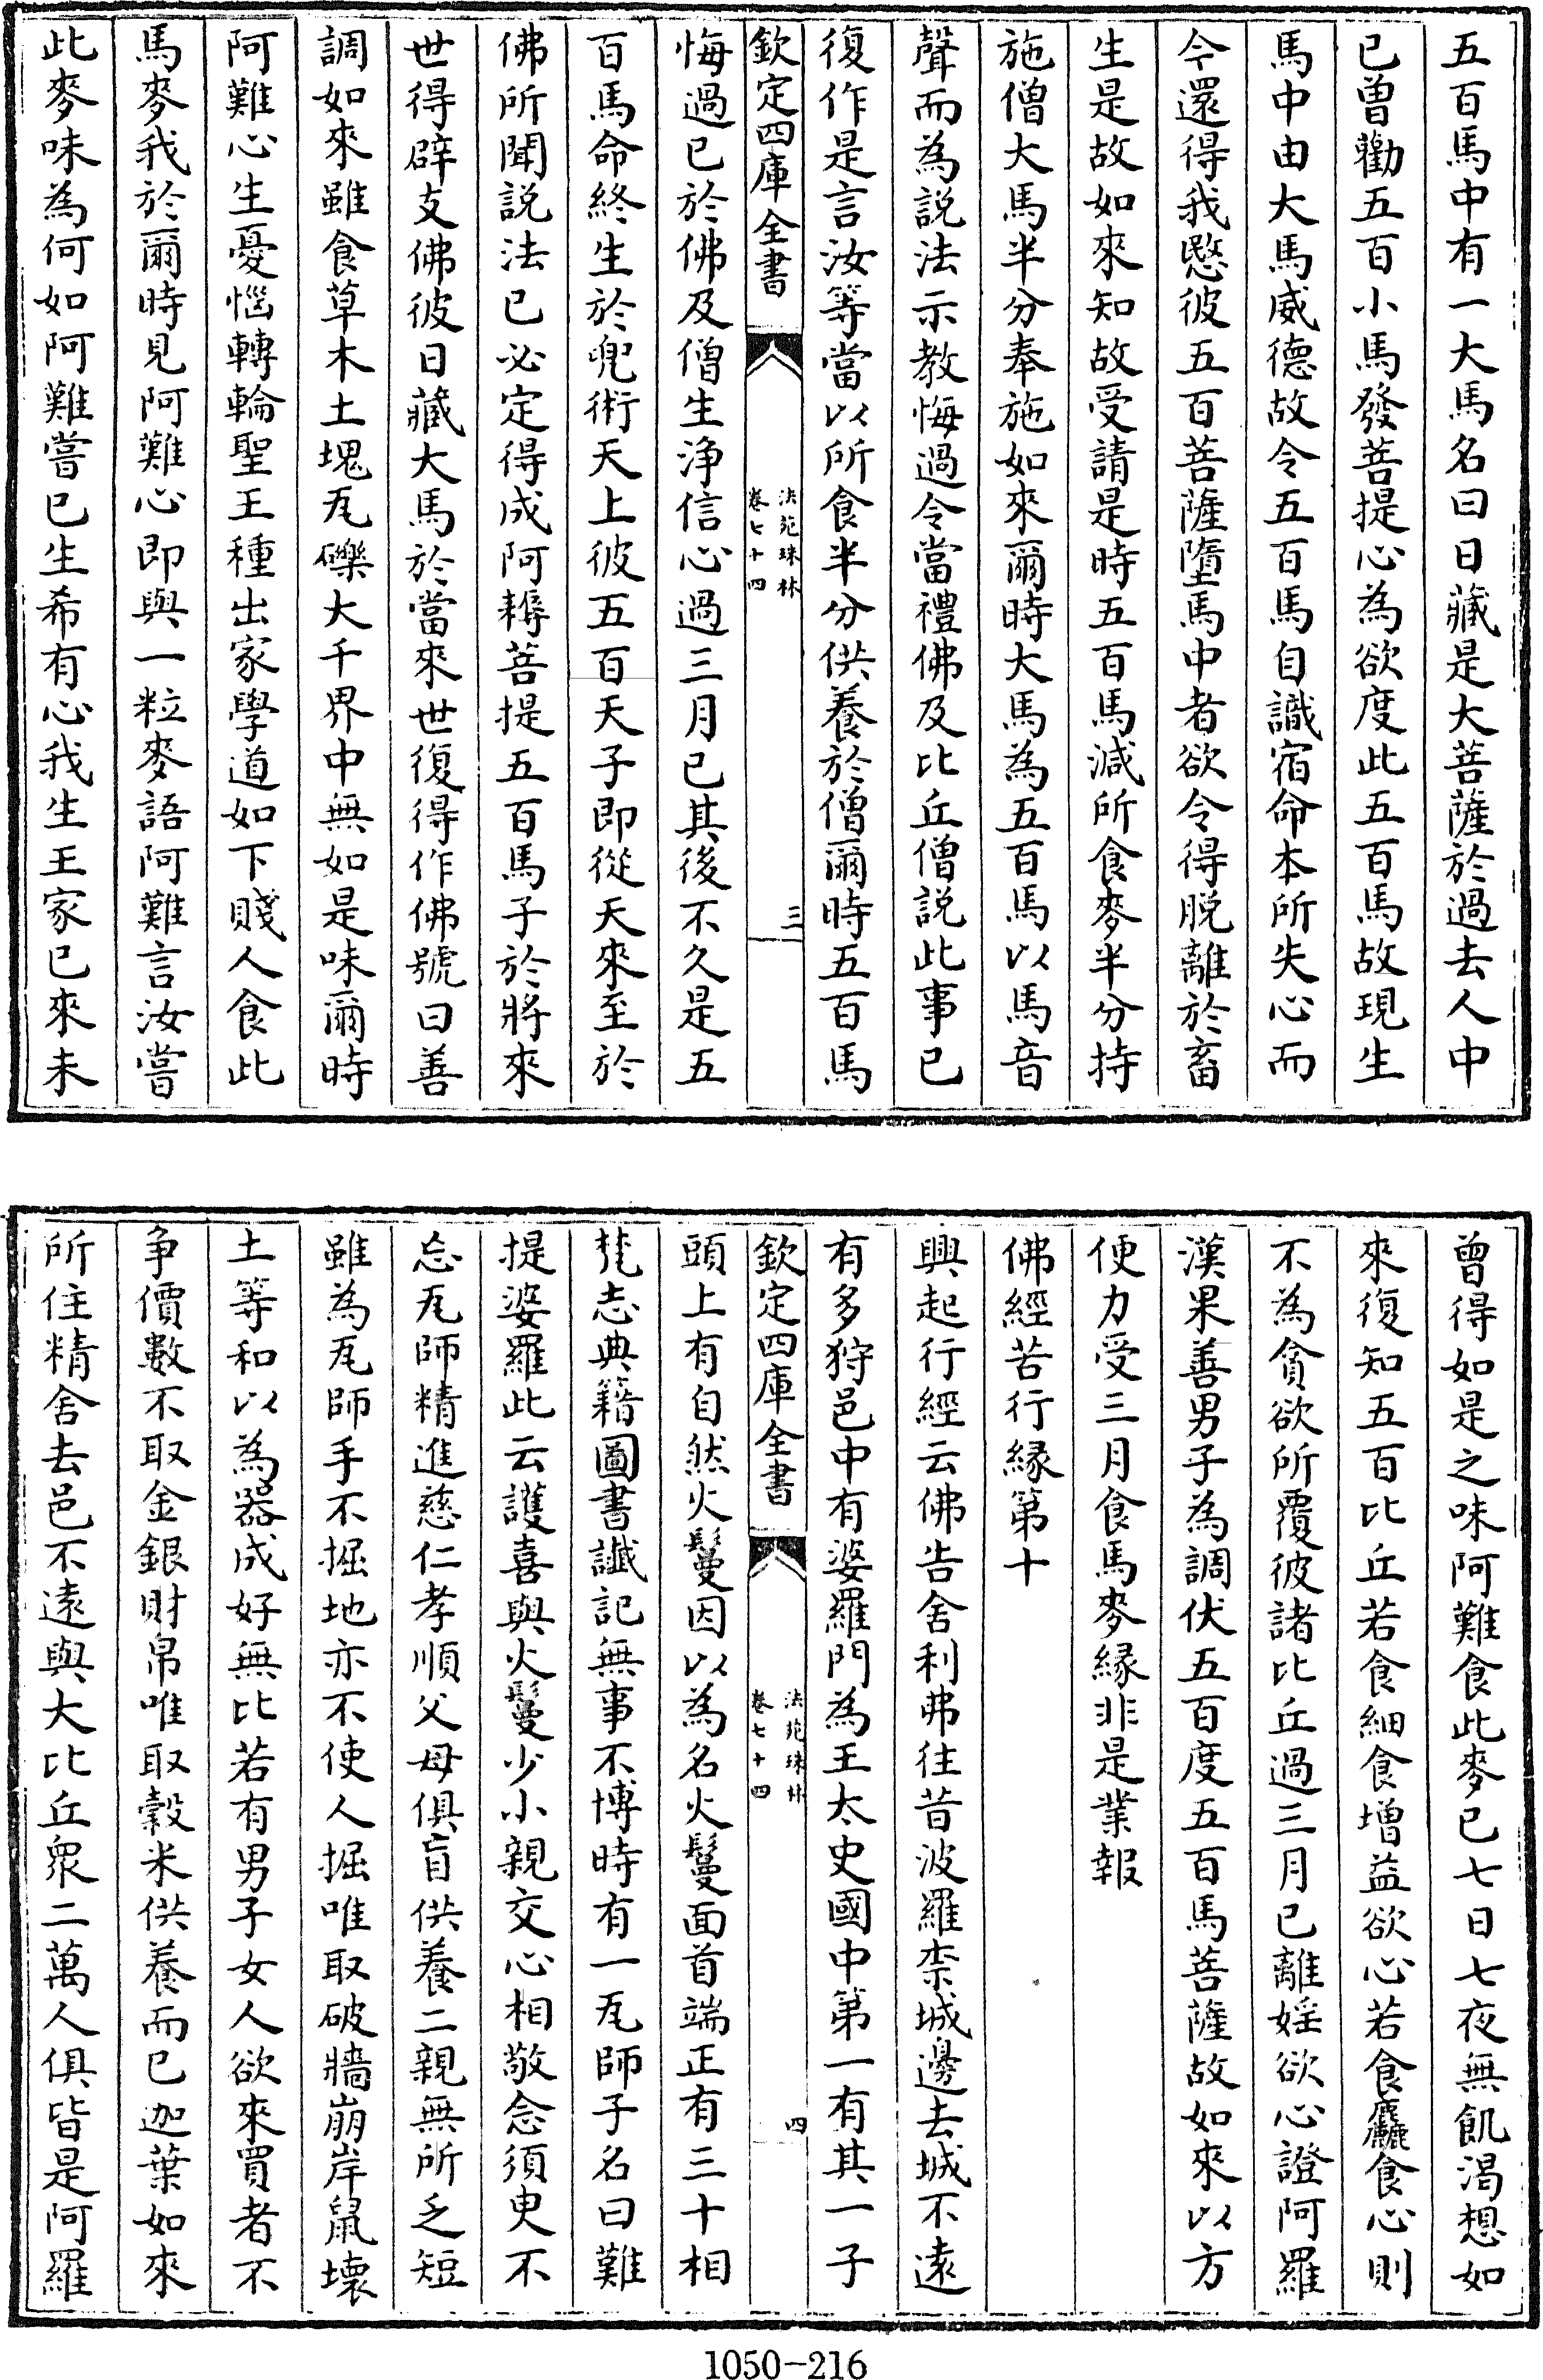 五百馬中有一大馬名曰日藏是大菩薩於過去人中
已曾勸五百小馬發菩提心為欲度此五百馬故現生
馬中由大馬威德故令五百馬自識宿命本所失心而
今還得我愍彼五百菩薩墮馬中者欲令得脱離於畜
生是故如來知故受請是時五百馬減所食麥半分持
施僧大馬半分奉施如來爾時大馬為五百馬以馬音
聲而為説法示教悔過令當禮佛及比丘僧説此事已
復作是言汝等當以所食半分供養於僧爾時五百馬
欽定四庫全書
法苑珠林
卷七十四
三
悔過已於佛及僧生淨信心過三月已其後不久是五
百馬命終生於兜術天上彼五百天子即從天來至於
佛所聞説法已必定得成阿耨菩提五百馬子於將來
世得辟支佛彼日藏大馬於當來世復得作佛號曰善
調如來雖食草木土塊瓦礫大千界中無如是味爾時
阿難心生憂惱轉輪聖王種出家學道如下賤人食此
馬麥我於爾時見阿難心即與一粒麥語阿難言汝嘗
此麥味為何如阿難嘗已生希有心我生王家已來未
曾得如是之味阿難食此麥已七日七夜無飢渴想如
來復知五百比丘若食細食增益欲心若食麤食心則
不為貪欲所覆彼諸比丘過三月已離婬欲心證阿羅
漢果善男子為調伏五百度五百馬菩薩故如來以方
便力受三月食馬麥緣非是業報
佛經苦行緣第十
興起行經云佛告舍利弗往昔波羅柰城邊去城不遠
有多狩邑中有婆羅門為王太史國中第一有其一子
欽定四庫全書
法苑珠林
卷七十四
四
頭上有自然火鬘因以為名火鬘面首端正有三十相
梵志典籍圖書讖記無事不博時有一瓦師子名曰難
提婆羅此云護喜與火鬘少小親交心相敬念須臾不
忘瓦師精進慈仁孝順父母俱盲供養二親無所乏短
雖為瓦師手不掘地亦不使人掘唯取破牆崩岸鼠壞
土等和以為器成好無比若有男子女人欲來買者不
爭價數不取金銀財帛唯取穀米供養而已迦葉如來
所住精舍去邑不遠與大比丘眾二萬人俱皆是阿羅
1050-216